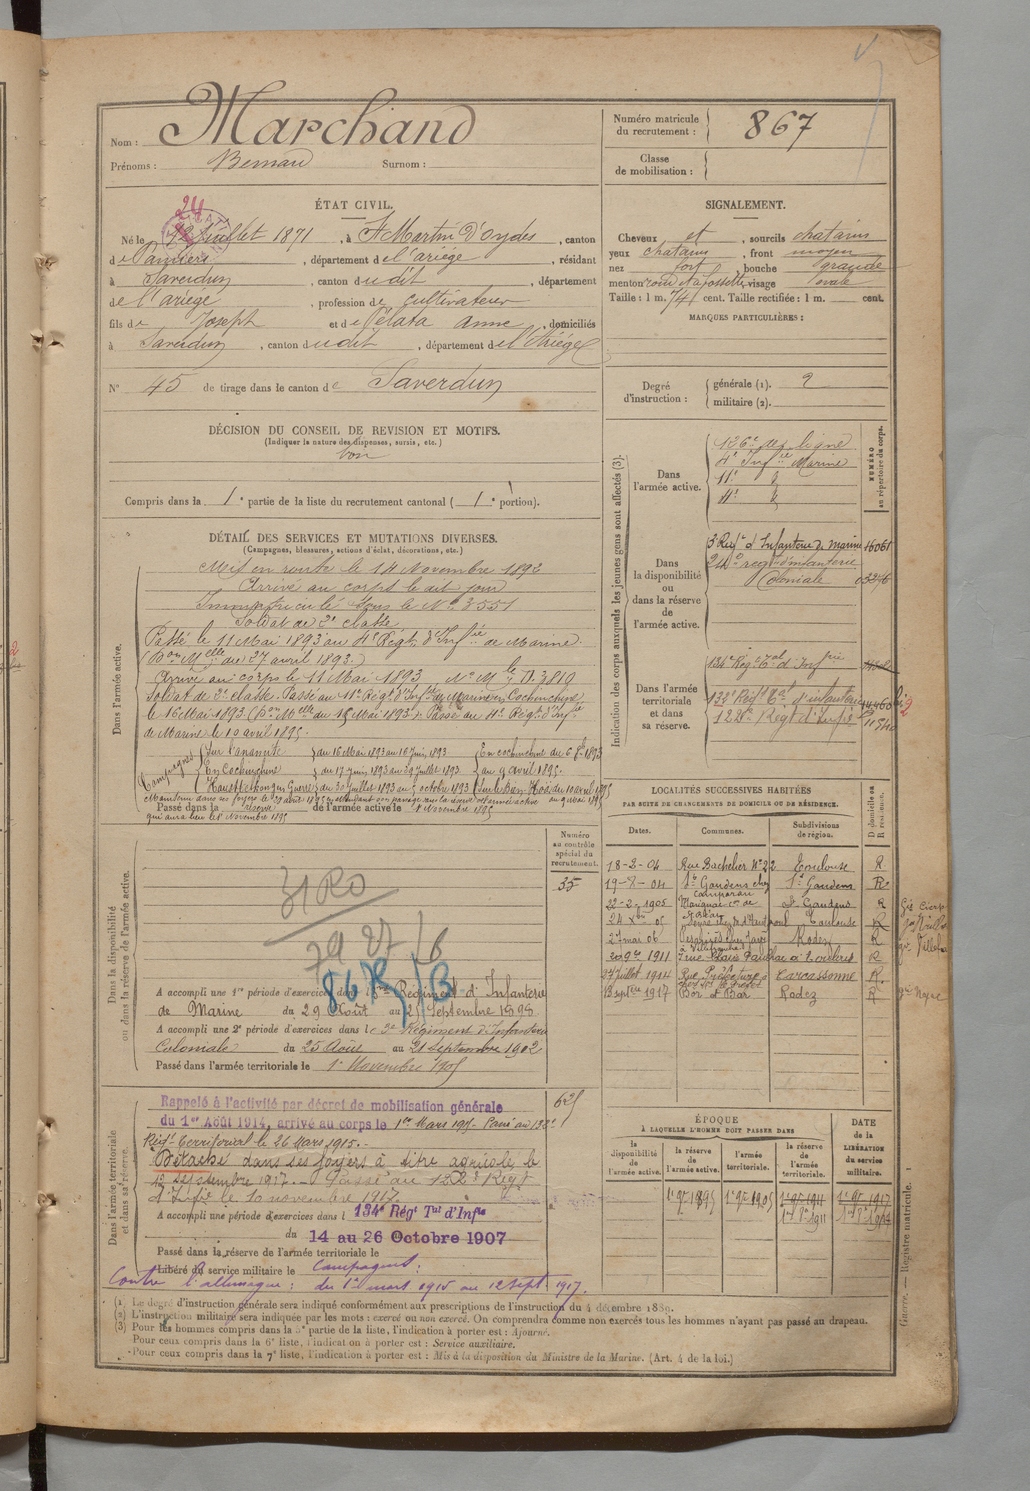 Nom : Marchand
Prénoms : Bernard Surnom :
Numéro matricule du recrutement : 867
Classe de mobilisation :
ÉTAT CIVIL.
24
Né le 12 Juillet 1871, à St Martin d'Oydes, canton
de Pamiers, département de l'ariège, résidant
à Saverdun, canton dudit, département
de l'ariège, profession de cultivateur
fils de Joseph et de Pélata Anne, domiciliés
à Saverdun, canton dudit, département de l'Ariège
N° 45 de tirage dans le canton de Saverdun
SIGNALEMENT.
Cheveux et, sourcils chatains
yeux chatains, front moyen
nez fort, bouche grande
menton rond et à fossette, visage ovale
Taille : 1 m. 74 cent. Taille rectifiée : 1 m. cent.
MARQUES PARTICULIÈRES :
Degré d'instruction : générale (1). 2
militaire (2).
DÉCISION DU CONSEIL DE REVISION ET MOTIFS.
(Indiquer la nature des dispenses, sursis, etc.)
bon
Compris dans la 1e partie de la liste du recrutement cantonal ( 1e portion).
DÉTAIL DES SERVICES ET MUTATIONS DIVERSES.
(Campagnes, blessures, actions d'éclat, décorations, etc.)
Dans l'armée active.
Mis en route le 14 Novembre 1892
Arrivé au corps le dit jour
Immatriculé sous le N° 3551
Soldat de 2e classe
Passé le 11 Mai 1893 au 4e Régt d'Infie de Marine
(Bon Mlle du 27 avril 1893.)
Arrivé au corps le 11 Mai 1893 N° Mle 3819
Soldat de 2e classe. Passé au 11e Régt d'Infie de Marine en Cochinchine
le 16 Mai 1893 (Bon Mlle du 15 Mai 1893). Passé au 4e Régt d'Infie
de Marine le 10 avril 1895.
Campagnes
Sur l'annamite du 16 Mai 1893 au 16 Juin 1893
En Cochinchine du 17 juin 1893 au 29 Juillet 1893
du 30 Juillet 1893 au 5 octobre 1893
En cochinchine du 6 8bre 1893 au 9 avril 1895.
du 10 avril 1895 au 9 Mai 1895
Passé dans la réserve de l'armée active le 1 Novembre 1895
qui aura lieu le 8 Novembre 1895
Indication des corps auxquels les jeunes gens sont affectés (3).
NUMÉRO au répertoire du corps.
Dans l'armée active.
126e de ligne
4e Infie Marine
11e "
4e "
Dans la disponibilité ou dans la réserve de l'armée active.
3e Regt d'Infanterie de marine 16061
24e regt d'infanterie
Coloniale 03276
Dans l'armée territoriale et dans sa réserve.
134e Rég. Tal d'Infrie
132e Régt Tal d'infanterie
122e Régt d'Infie
LOCALITÉS SUCCESSIVES HABITÉES
PAR SUITE DE CHANGEMENTS DE DOMICILE OU DE RÉSIDENCE.
Dates. Communes. Subdivisions de région. D domicile ou R résidence.
18-2-04 Rue Bachelier N° 22 Toulouse R
19-8-04 St Gaudens chez St Gaudens R
22-2-1905 St Gaudens R
24 Xbre 05 Toulouse R
27 mai 06 Rodez R
20 9bre 1911 R
27 Juillet 1914 Rue Préfecture Carcassonne R
13 septbre 1917 Bor et Bar Rodez R
Dans la disponibilité ou dans la réserve de l'armée active.
Numéro au contrôle spécial du recrutement.
35
31 R0
79 27/6
86 R/B
A accompli une 1re période d'exercices dans le Régiment d'Infanterie
de Marine du 29 Août au 25 Septembre 1898
A accompli une 2e période d'exercices dans le 3e Régiment d'Infanterie
Coloniale du 25 Août au 21 Septembre 1902
Passé dans l'armée territoriale le 1er Novembre 1905
Dans l'armée territoriale et dans sa réserve.
Rappelé à l'activité par décret de mobilisation générale 625
du 1er Août 1914, arrivé au corps le 1er Mars 1915. Passé au 132e
Régt Territorial le 26 Mars 1915.
Détaché dans ses foyers à titre agricole le
12 septembre 1917. Passé au 122e Régt
d'Infie le 10 novembre 1917
A accompli une période d'exercices dans l 134e Régt Tal d'Infie
du 14 au 26 Octobre 1907
Passé dans la réserve de l'armée territoriale le
Libéré du service militaire le Campagnes :
Contre l'allemagne : du 1er mars 1915 au 12 sept. 1917.
ÉPOQUE
À LAQUELLE L'HOMME DOIT PASSER DANS
la disponibilité de l'armée active.
la réserve de l'armée active.
l'armée territoriale.
la réserve de l'armée territoriale.
DATE de la LIBÉRATION du service militaire.
1er 9bre 1895 1er 9bre 1905 1er 9bre 1911 1er 9bre 1917
(1) Le degré d'instruction générale sera indiqué conformément aux prescriptions de l'instruction du 4 décembre 1889.
(2) L'instruction militaire sera indiquée par les mots : exercé ou non exercé. On comprendra comme non exercés tous les hommes n'ayant pas passé au drapeau.
(3) Pour les hommes compris dans la 5e partie de la liste, l'indication à porter est : Ajourné.
Pour ceux compris dans la 6e liste, l'indication à porter est : Service auxiliaire.
Pour ceux compris dans la 7e liste, l'indication à porter est : Mis à la disposition du Ministre de la Marine. (Art. 4 de la loi.)
Guerre. — Registre matricule. 1